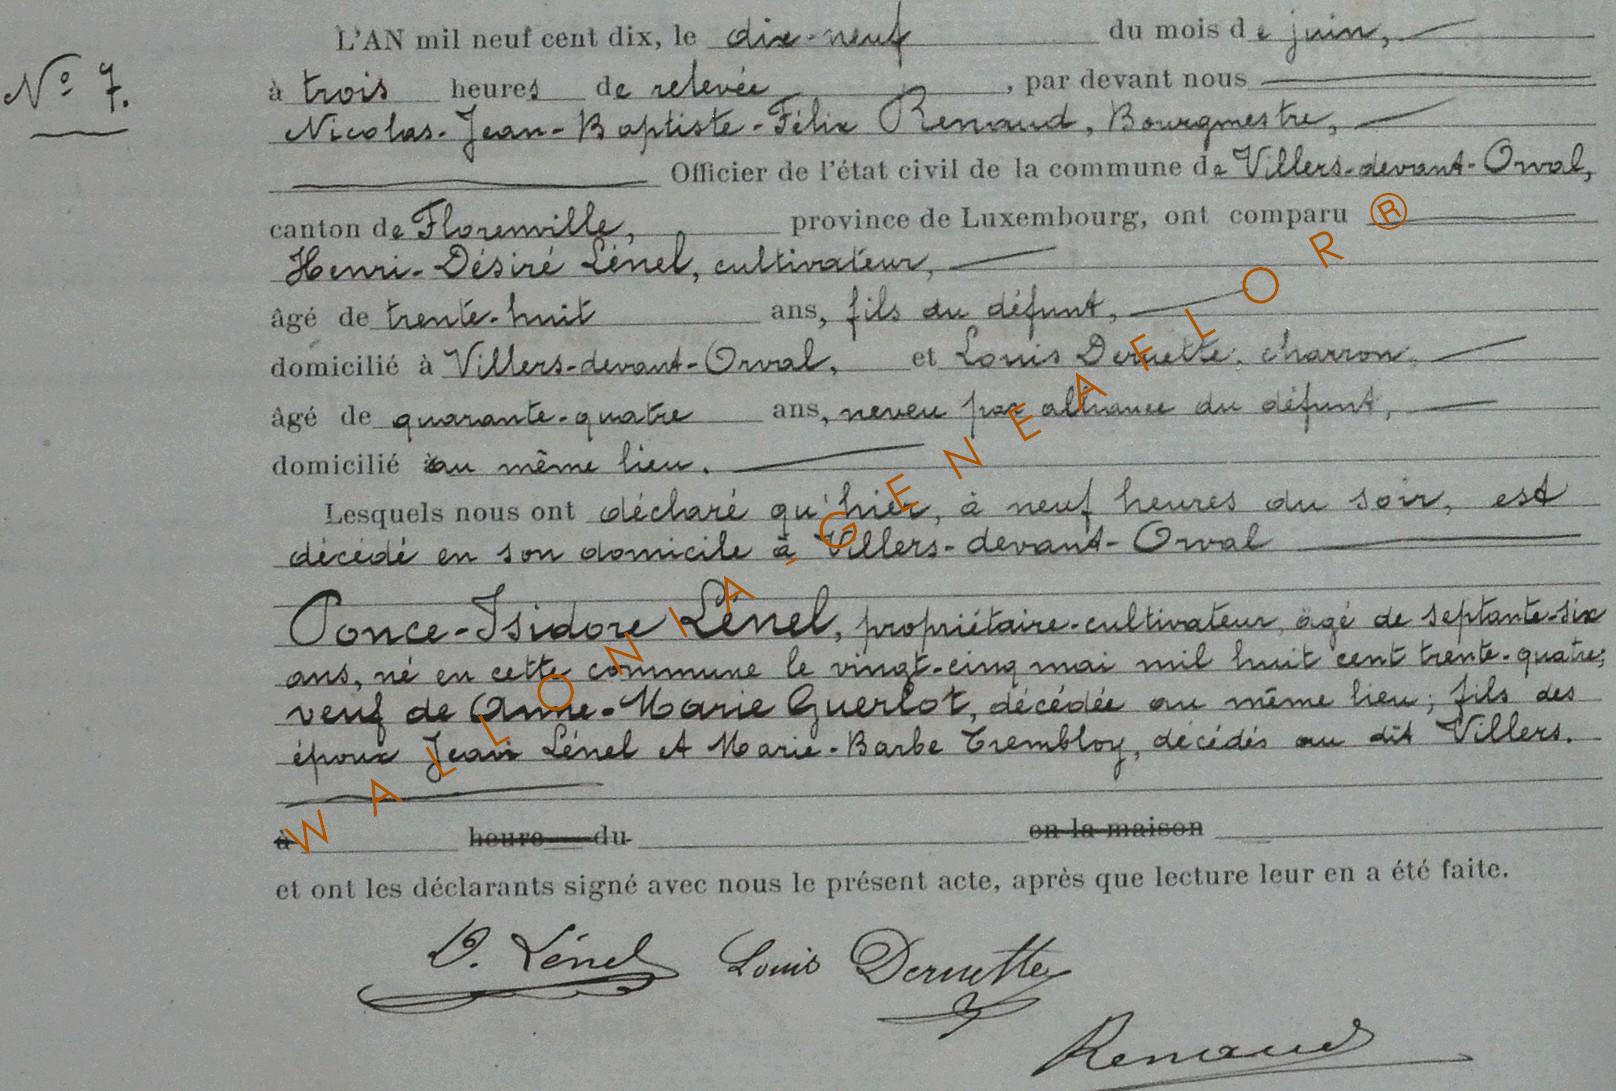 L'AN mil neuf cent dix, le dix-neuf du mois de juin,
N° 7.
à trois heures de relevée, par devant nous
Nicolas-Jean-Baptiste-Félix Renaud, Bourgmestre,
Officier de l'état civil de la commune de Villers-devant-Orval,
canton de Florenville, province de Luxembourg, ont comparu
Henri-Désiré Lénel, cultivateur,
âgé de trente-huit ans, fils du défunt,
domicilié à Villers-devant-Orval, et Louis Deruette, charron,
âgé de quarante-quatre ans, neveu par alliance du défunt,
domicilié au même lieu.
Lesquels nous ont déclaré qu'hier, à neuf heures du soir, est
décédé en son domicile à Villers-devant-Orval
Ponce-Isidore Lénel, propriétaire-cultivateur, âgé de septante-six
ans, né en cette commune le vingt-cinq mai mil huit cent trente-quatre;
veuf de Anne-Marie Guerlot, décédée au même lieu; fils des
époux Jean Lénel et Marie-Barbe Trembloy, décédés au dit Villers.
à heure du en la maison
et ont les déclarants signé avec nous le présent acte, après que lecture leur en a été faite.
D. Lénel Louis Deruette
Renaud
WALLONIA-GENEAFLOR®